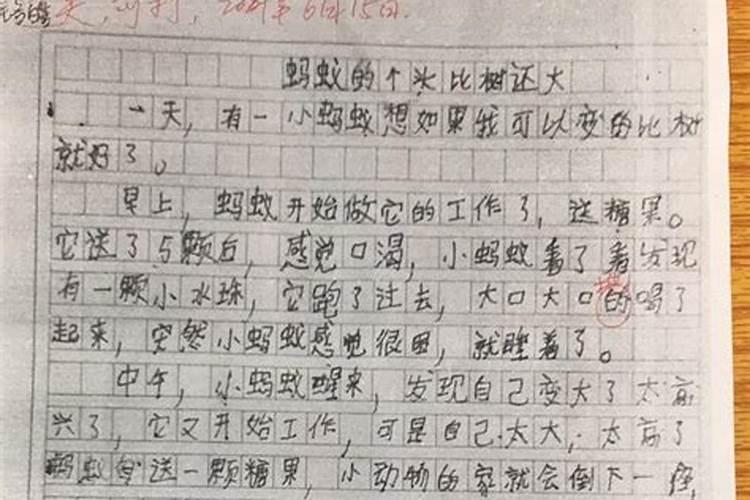 2021年6月15日.
蚂蚁的个头比树还大
一天，有一小蚂蚁想如果我可以变的比树
就好了。
早上，蚂蚁开始做它的工作了，送糖果。
它送了5颗后，感觉口渴，小蚂蚁看了看发现
有一颗小水珠，它跑了过去，大口大口的喝了
起来，突然小蚂蚁感觉很困，就睡着了。
中午，小蚂蚁醒来，发现自己变大了太高
兴了，它又开始工作，可是自己太大，太高了
蚂蚁每送一颗糖果，小动物的家就会倒下一座，